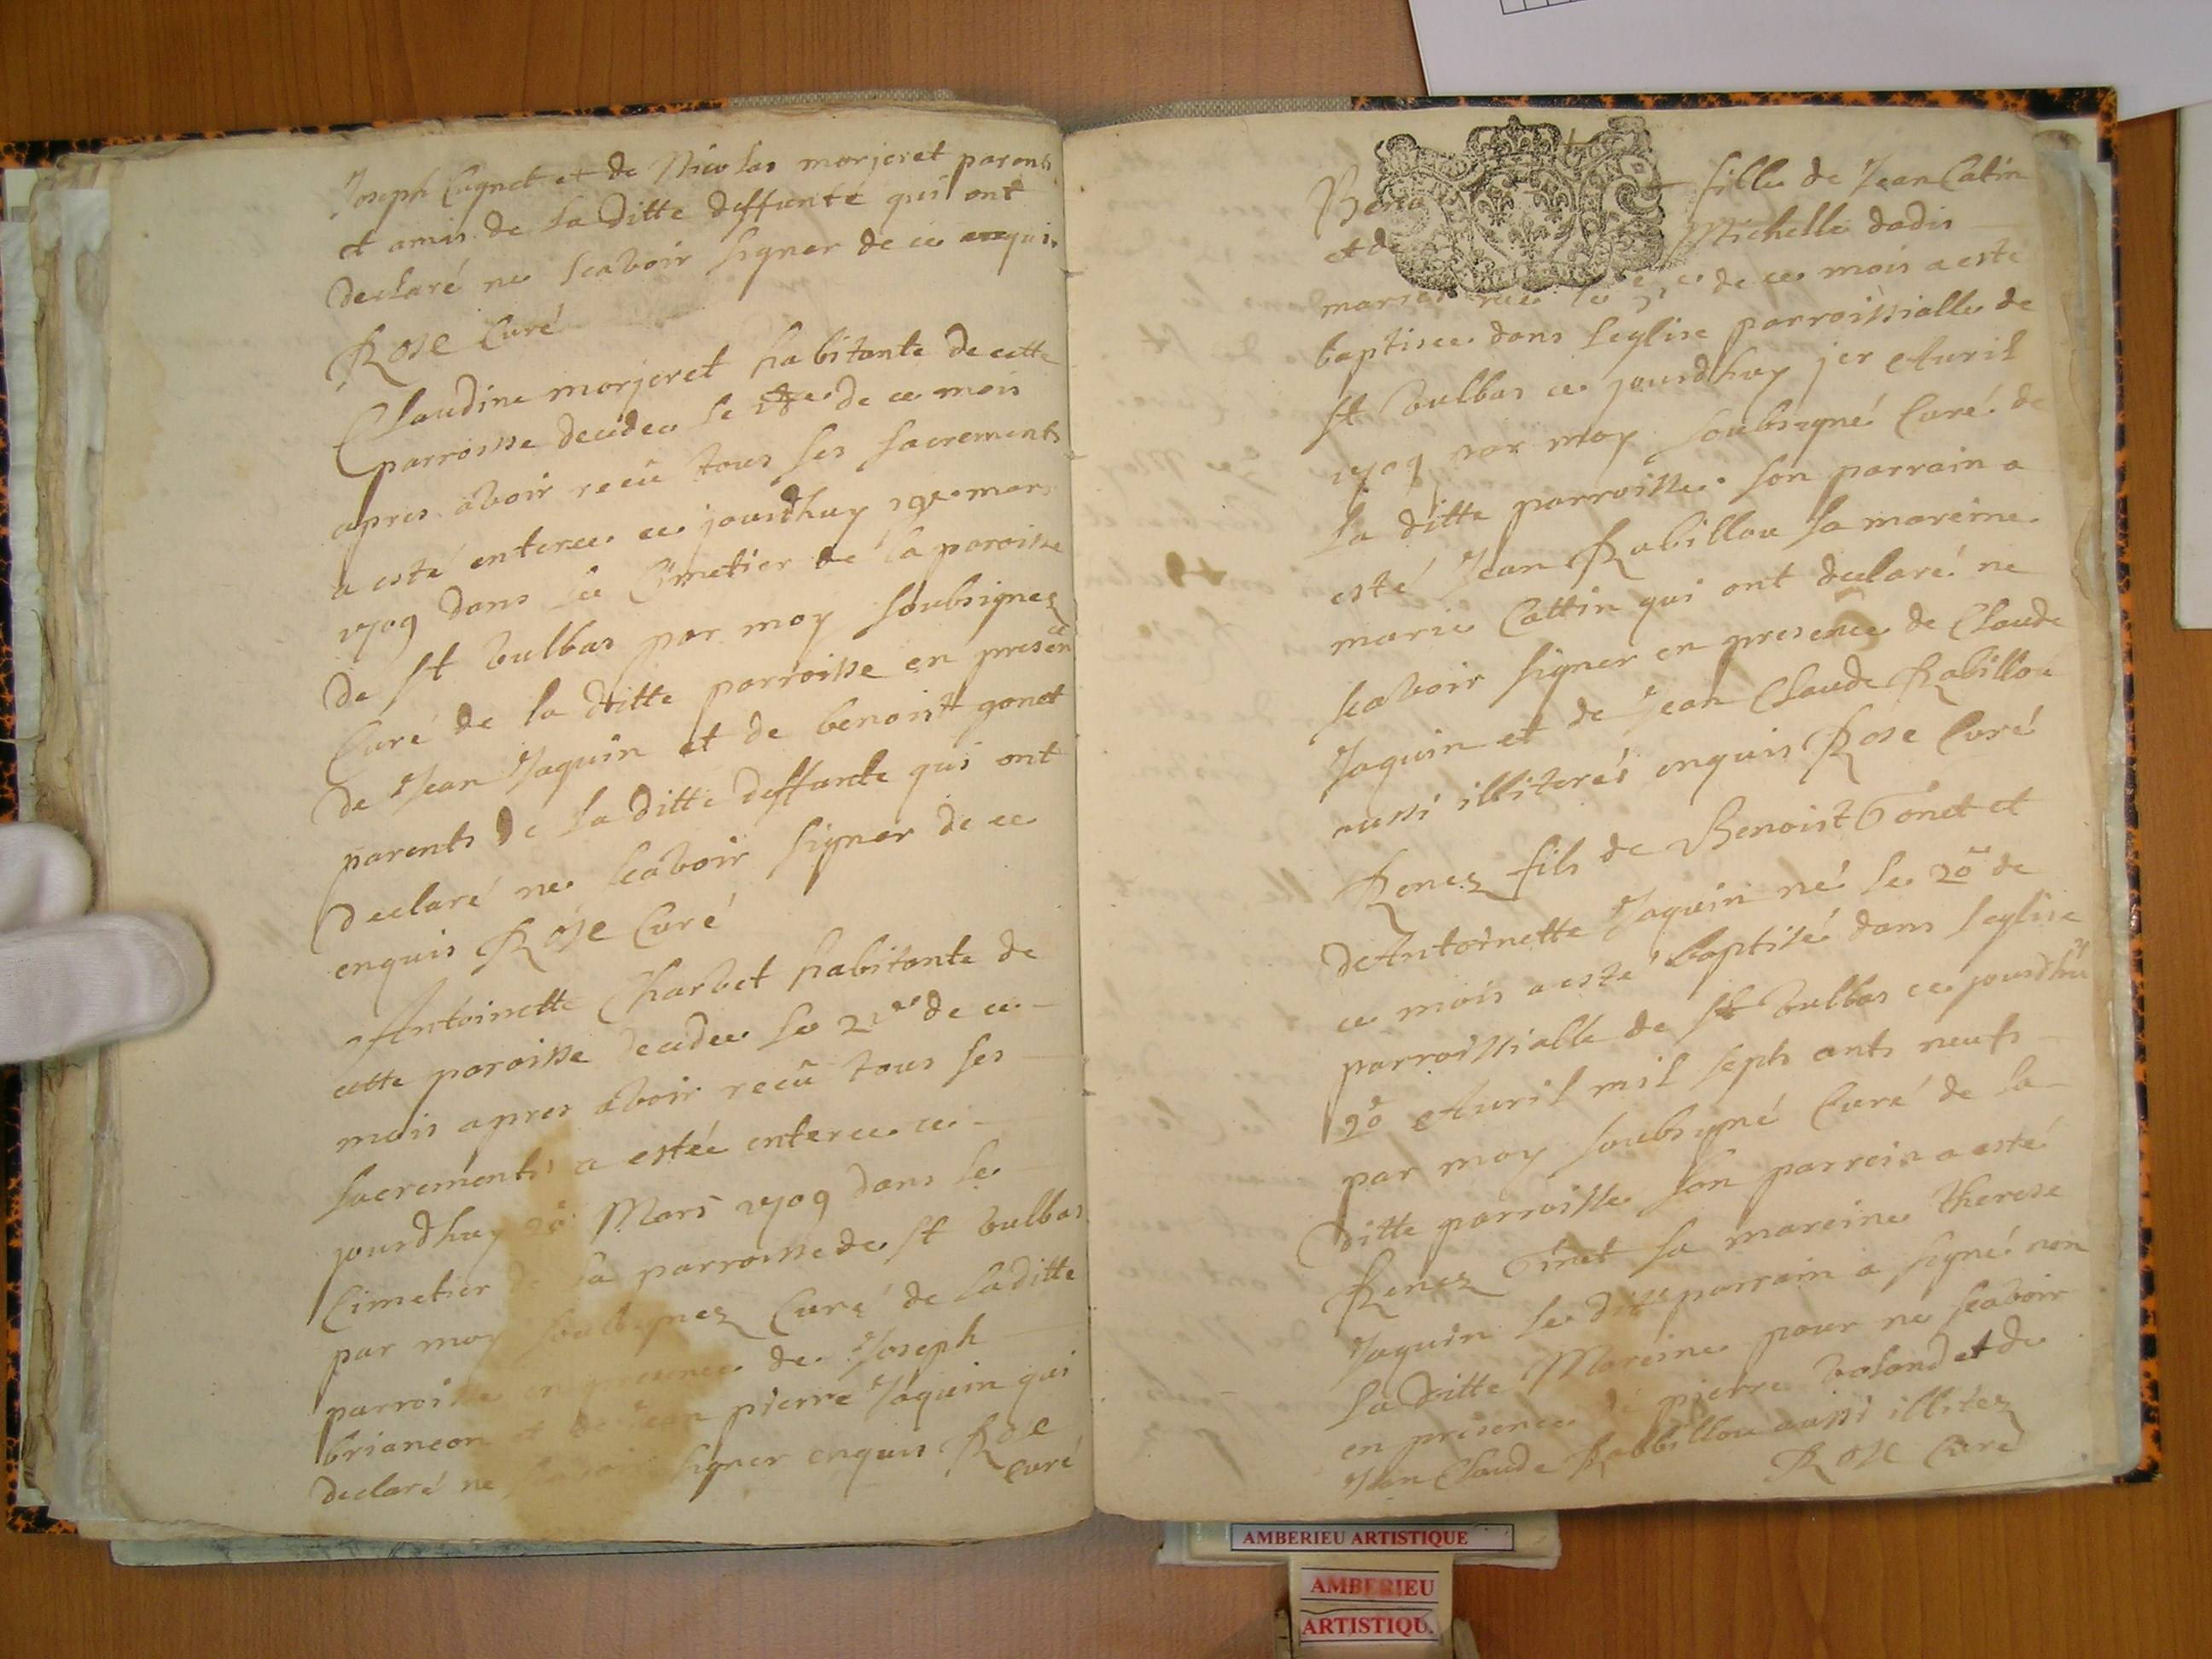 Joseph Cugnet et de Nicolas morjeret parents
et amis de la ditte deffunte qui ont
declaré ne scavoir signer de ce enquis
Rose Curé
Claudine morjeret habitante de cette
parroisse decedee le 18e de ce mois
apres avoir recû tous ses sacrements
a esté enteree ce jourdhuy 19e mars
1709 dans le Cimetier de la paroisse
de st Vulbas par moy soubsignez
Curé de la ditte parroisse en presence
de Jean Jaquin et de benoist gonet
parents de la ditte deffunte qui ont
declaré ne scavoir signer de ce
enquis Rose Curé
Antoinette Charvet habitante de
cette paroisse decedee le 21e de ce
mois apres avoir recû tous ses
sacrements a estée enteree ce
jourdhuy Mars 1709 dans le
Cimetier de la parroisse de st Vulbas
par moy soubsignez Curé de la ditte
parroisse en presence de Joseph
briancon et de Jean pierre Jaquin qui
declaré ne scavoir signer enquis Rose
curé
fille de Jean Catin
et de Michelle dadis
mariés de ce mois a esté
baptisee dans leglise parroissialle de
st Vulbas ce jourdhuy jer Auril
1709 par moy soubsigné Curé de
la ditte parroisse. son parrain a
esté Jean Rabillou sa mareine
marie Cattin qui ont declaré ne
scavoir signer en presence de Claude
Jaquin et de Jean Claude Rabillou
aussi illiterés enquis Rose Curé
Renez fils de Benoist Gonet et
dAntoinette Jaquin né le 20 de
ce mois a esté baptisé dans leglise
parroissialle de st Vulbas ce jourdhuy
20 Auril mil septs ants neufs
par moy soubsigné Curé de la
ditte parroisse son parrein a esté
Renez sa mareine therese
Jaquin le dit parrain a signé non
la ditte Mareine pour ne scavoir
en presence de pierre Volond et de
Jean Claude Rabbillou aussi illitez
Rose Curé
AMBERIEU ARTISTIQUE
AMBERIEU
ARTISTIQU